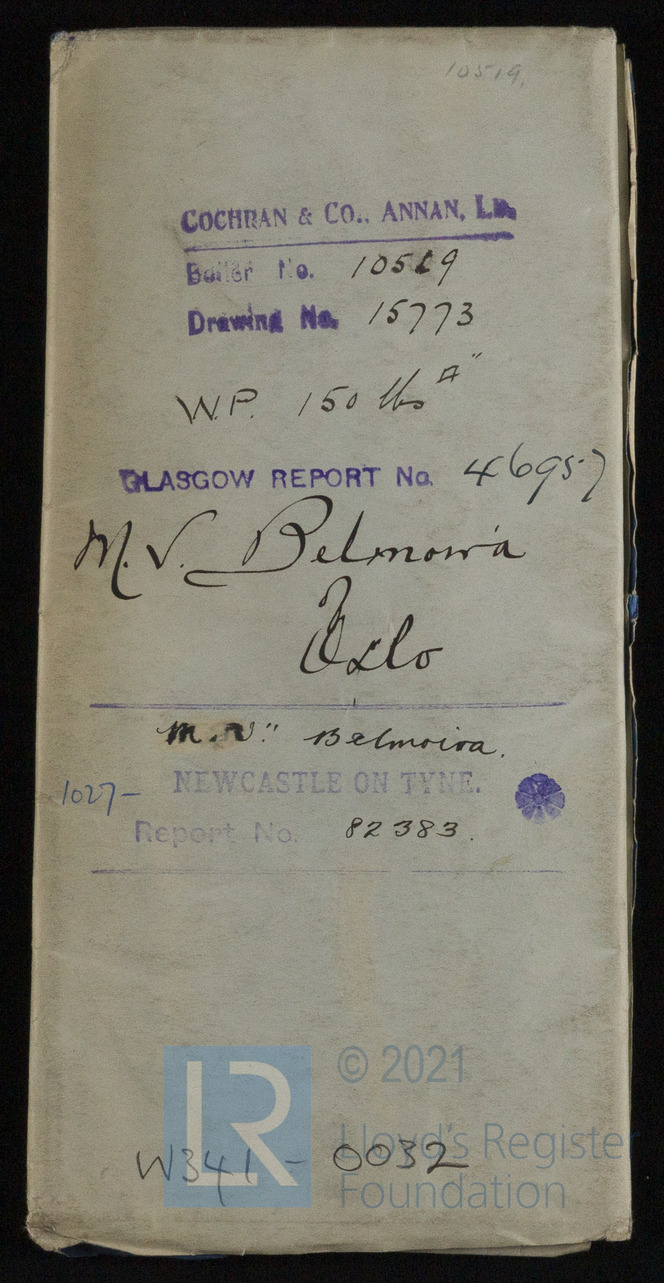 10519.
COCHRAN & CO., ANNAN, LD.
Boiler No. 10519
Drawing No. 15773
W.P. 150 lbs □"
GLASGOW REPORT No. 46957
M.V. Belmoira
Oslo
M.V." Belmoira.
NEWCASTLE ON TYNE.
1027-
Report No. 82383.
© 2021
LR
Lloyd's Register
W341-0032
Foundation